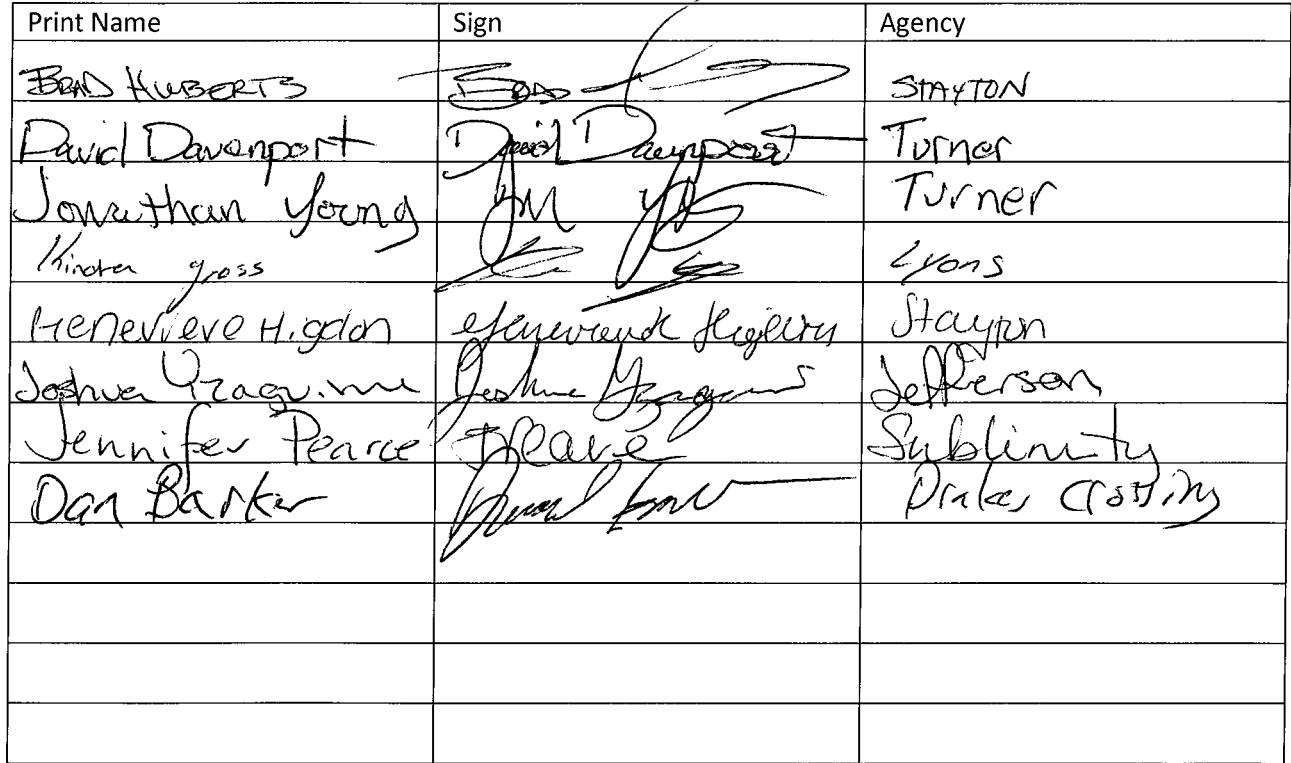 Print Name Sign Agency
BRAD HUBERTS BRAD STAYTON
David Davenport David Davenport Turner
Jonathan Young Turner
gross Lyons
Genevieve Higdon Genevieve Higdon Stayton
Joshua Joshua Jefferson
Jennifer Pearce JPearce Sublinity
Dan Barker Drakes Crossing